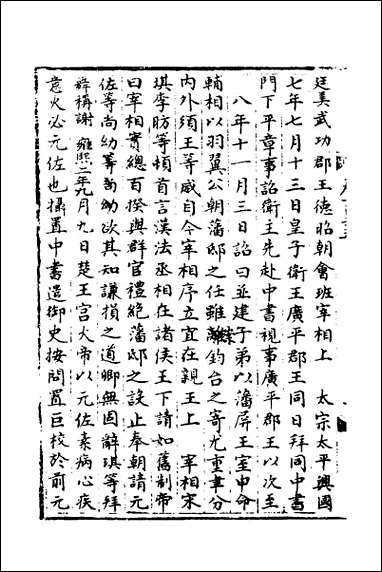 廷美武功郡王德昭朝會班宰相上　太宗太平興國
七年七月十三日皇子衛王廣平郡王同日拜同中書
門下平章事詔衛王先赴中書視事廣平郡王以次至
八年十一月三日詔曰並建子弟以藩屏王室申命
輔相以羽翼公朝藩邸之任雖釣台之寄尤重聿分
内外須王等威自今宰相序立宜在親王上　宰相宋
琪李昉等頓首言漢法丞相在諸侯王下請如舊制帝
曰宰相實總百揆與群官禮絶藩邸之設止奉朝請元
佐等尚幼等尚幼欲其知謙損之道卿無固辭琪等拜
舞稱謝　雍熙二年九月九日楚王宫火帝以元佐素病心疾
意火必元佐也攝置中書遣御史按問置巨校於前元